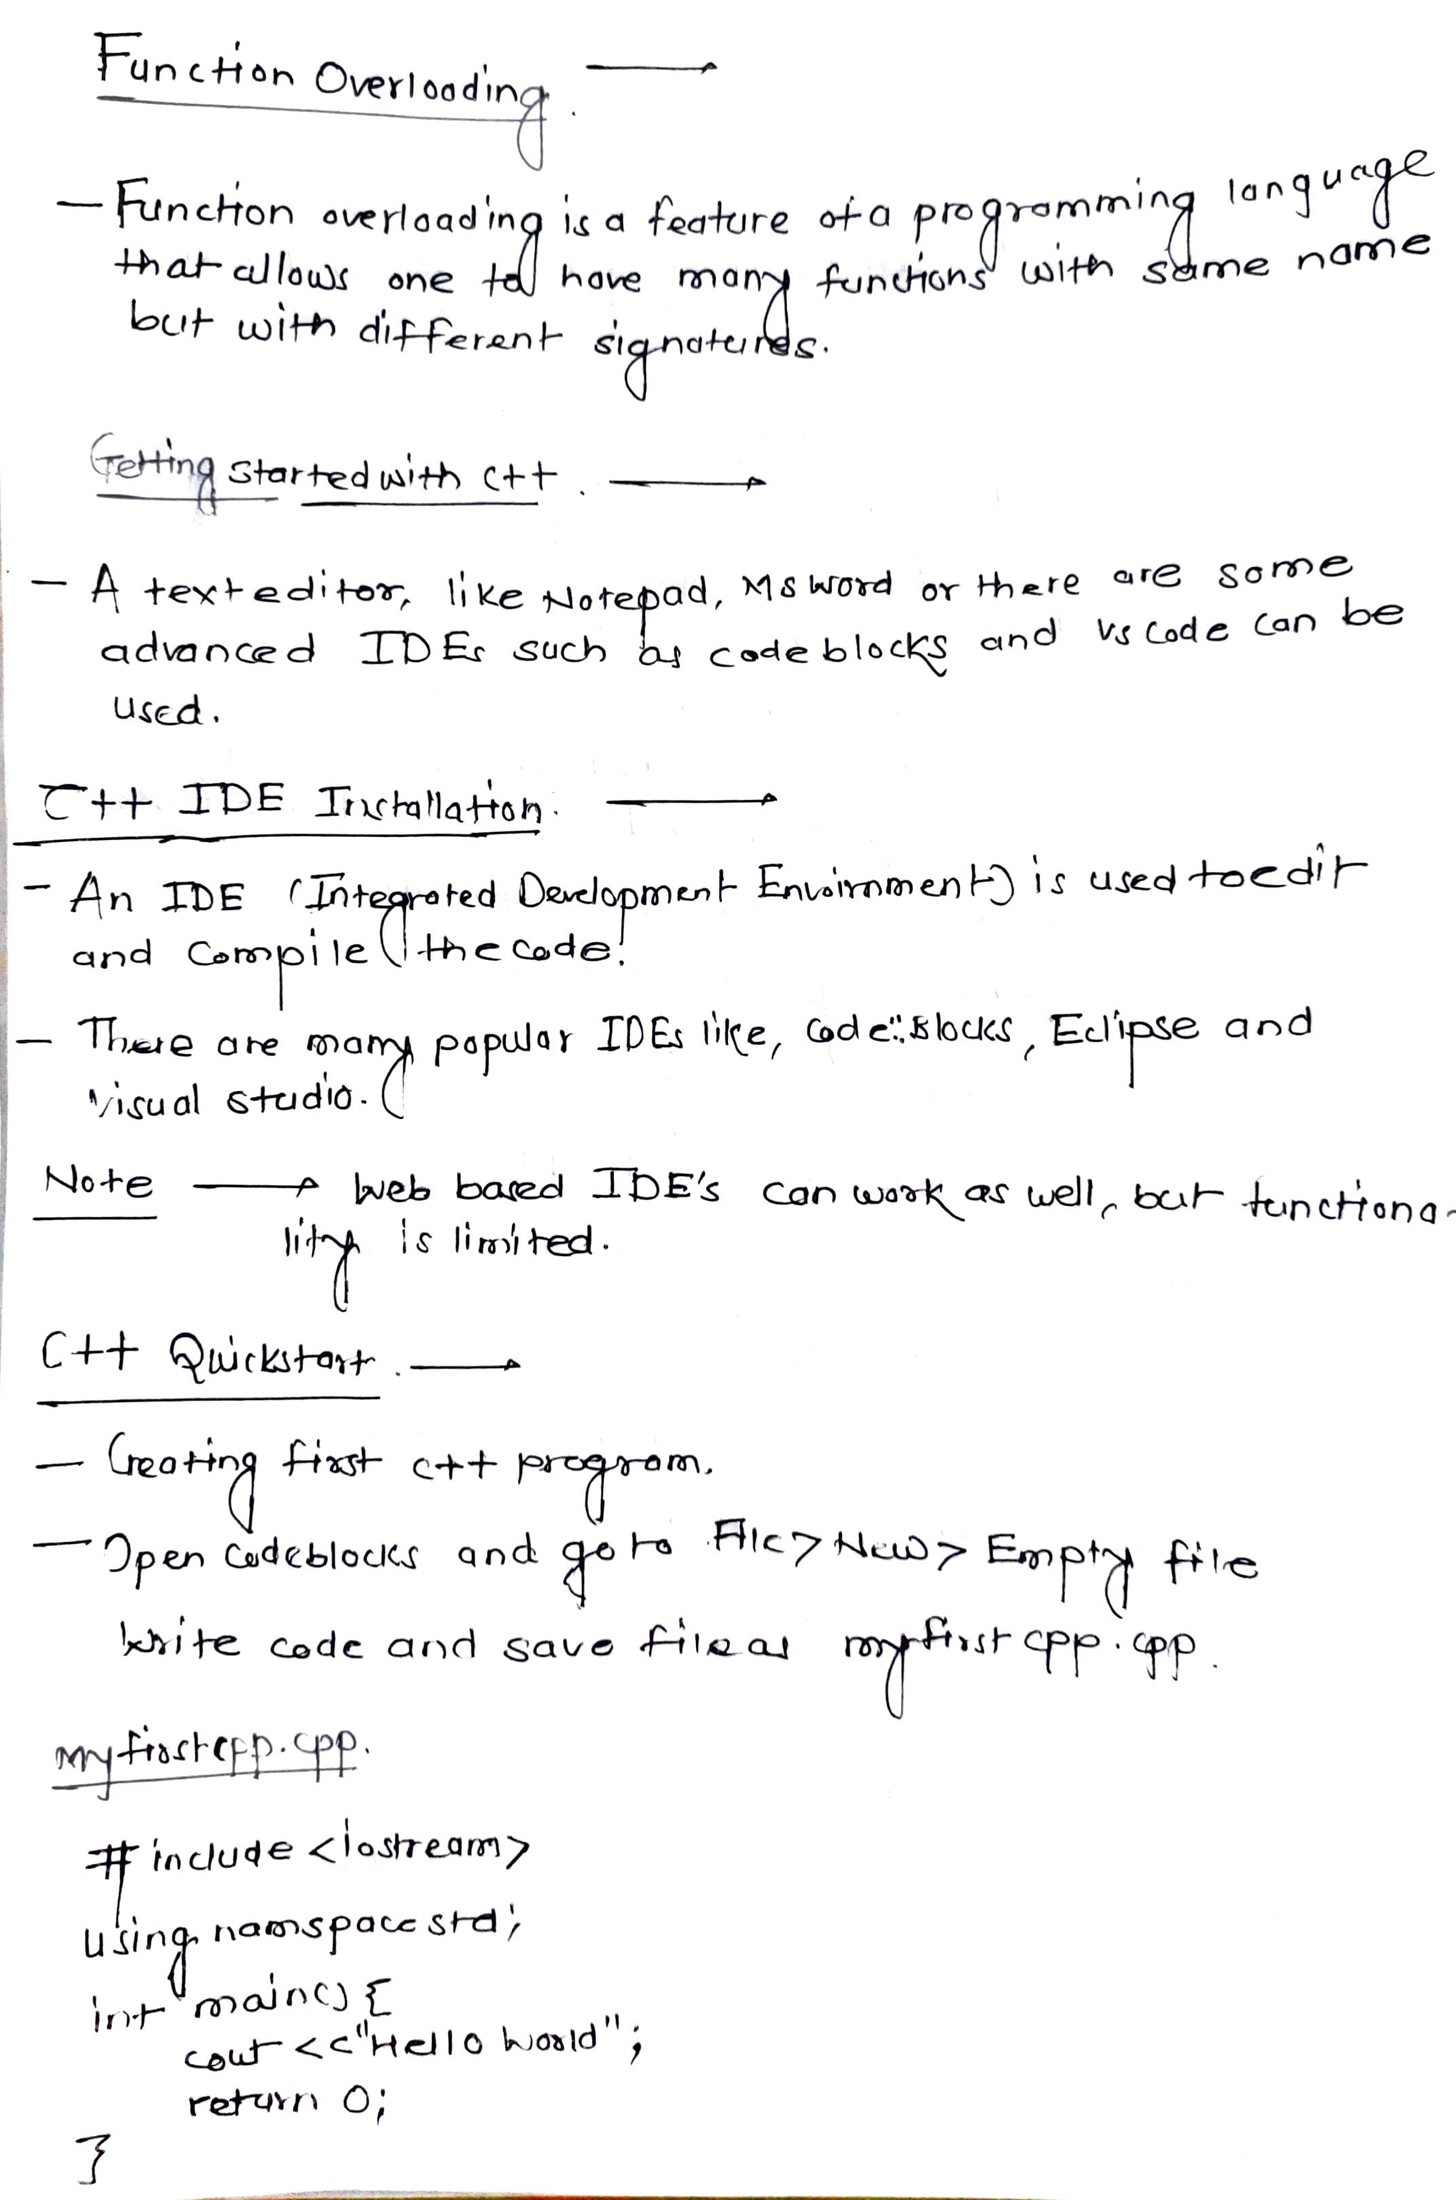 Function Overloading. →
– Function overloading is a feature of a programming language
that allows one to have many functions with same name
but with different signatures.
Getting started with C++. →
– A text editor, like Notepad, MS Word or there are some
advanced IDEs such as codeblocks and vs code can be
used.
C++ IDE Installation. →
– An IDE (Integrated Development Envoirnment) is used to edit
and compile the code.
– There are many popular IDEs like, Code::Blocks, Eclipse and
visual studio.
Note → Web based IDE's can work as well, but functiona-
lity is limited.
C++ Quickstart. →
– Creating first c++ program.
– Open Codeblocks and go to File > New > Empty file
Write code and save file as myfirstcpp.cpp.
myfirstcpp.cpp.
#include <iostream>
using namspace std;
int main() {
cout << "Hello World";
return 0;
}